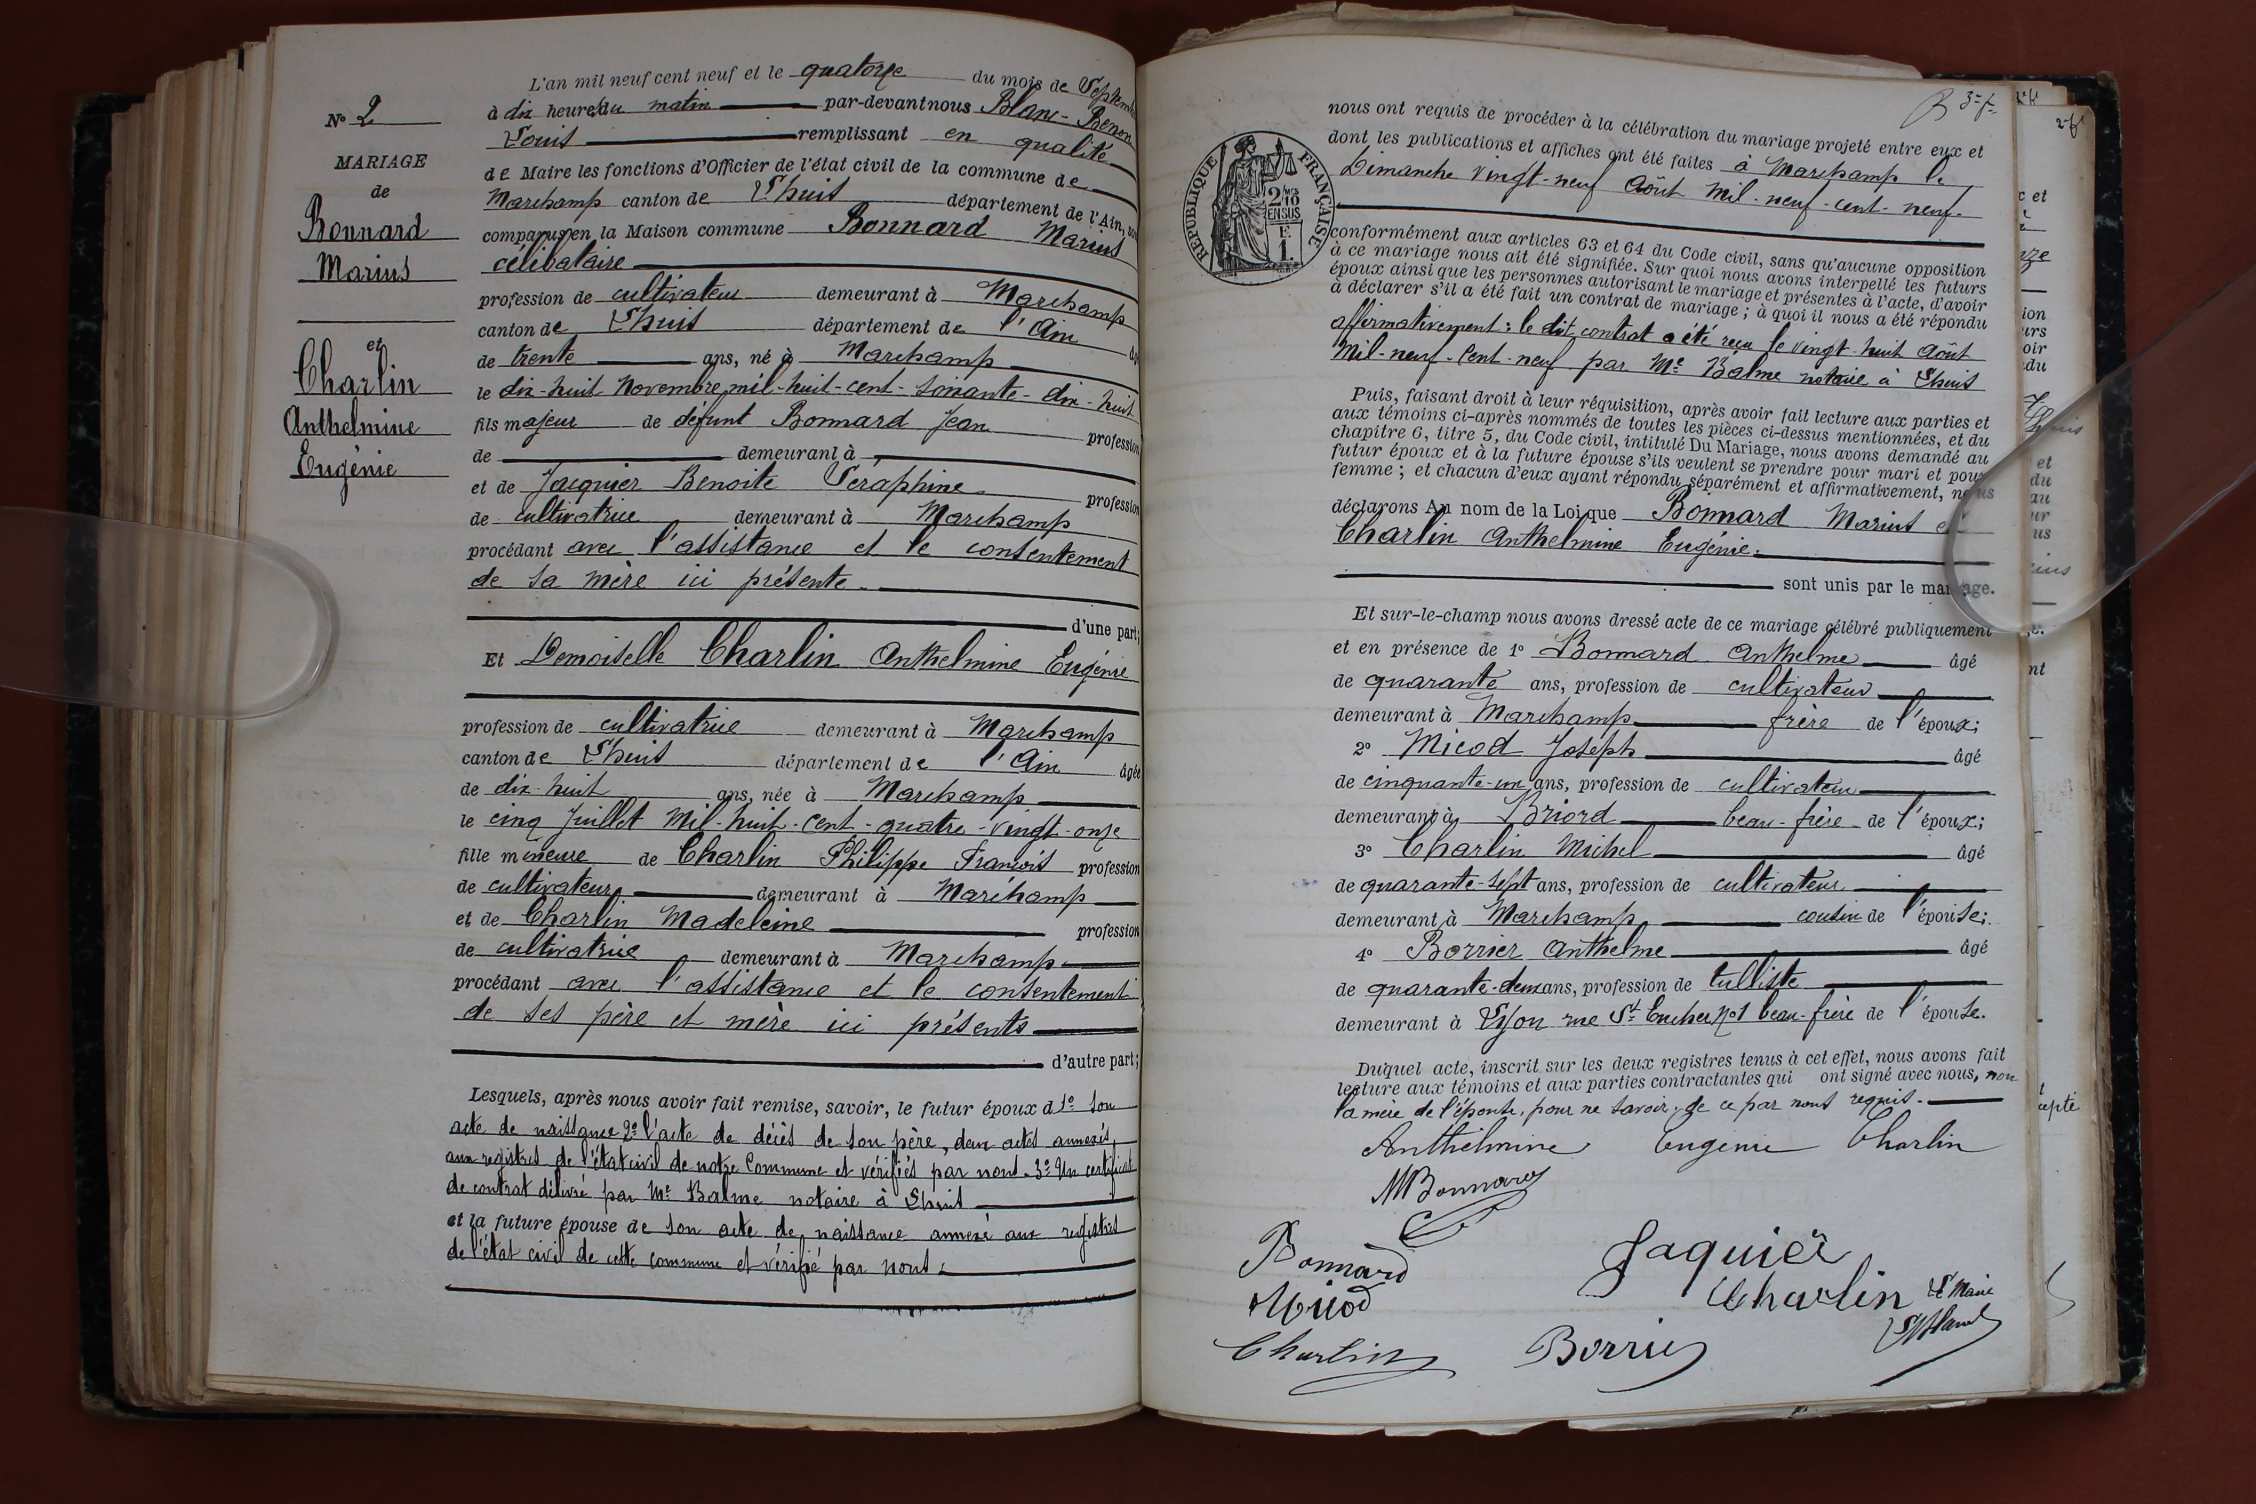 N° 2
MARIAGE
de
Bonnard
Marius
et
Charlin
Anthelmine
Eugénie
L'an mil neuf cent neuf et le quatorze du mois de Septembre
à dix heures du matin par-devant nous Blanc-Benon
Louis remplissant en qualité
de Maire les fonctions d'Officier de l'état civil de la commune de
Marchamp canton de Lhuis département de l'Ain,
comparus en la Maison commune Bonnard Marius
célibataire
profession de cultivateur demeurant à Marchamp
canton de Lhuis département de l'Ain
de trente ans, né à Marchamp
le dix-huit Novembre mil-huit-cent-soixante-dix-huit
fils majeur de défunt Bonnard Jean profession
de demeurant à
et de Jacquier Benoite Séraphine profession
de cultivatrice demeurant à Marchamp
procédant avec l'assistance et le consentement
de sa mère ici présente.
d'une part;
Et Demoiselle Charlin Anthelmine Eugénie
profession de cultivatrice demeurant à Marchamp
canton de Lhuis département de l'Ain âgée
de dix-huit ans, née à Marchamp
le cinq Juillet Mil-huit-cent-quatre-vingt-onze
fille mineure de Charlin Philippe François profession
de cultivateur demeurant à Marchamp
et de Charlin Madeleine profession
de cultivatrice demeurant à Marchamp
procédant avec l'assistance et le consentement
de ses père et mère ici présents
d'autre part;
Lesquels, après nous avoir fait remise, savoir, le futur époux d 1° son
acte de naissance 2° l'acte de décès de son père, deux actes annexés
aux registres de l'état civil de notre Commune et vérifiés par nous. 3° Un certificat
de contrat délivré par Me Balme notaire à Lhuis
et la future épouse de son acte de naissance annexé aux registres
de l'état civil de cette commune et vérifié par nous.
3-f-
REPUBLIQUE FRANÇAISE
2/10
EN SUS
F.
1.
nous ont requis de procéder à la célébration du mariage projeté entre eux et
dont les publications et affiches ont été faites à Marchamp le
Dimanche vingt-neuf Août Mil-neuf-cent-neuf.
conformément aux articles 63 et 64 du Code civil, sans qu'aucune opposition
à ce mariage nous ait été signifiée. Sur quoi nous avons interpellé les futurs
époux ainsi que les personnes autorisant le mariage et présentes à l'acte, d'avoir
à déclarer s'il a été fait un contrat de mariage; à quoi il nous a été répondu
affirmativement: le dit contrat a été reçu le vingt-huit Août
Mil-neuf-Cent-neuf par Me Balme notaire à Lhuis
Puis, faisant droit à leur réquisition, après avoir fait lecture aux parties et
aux témoins ci-après nommés de toutes les pièces ci-dessus mentionnées, et du
chapitre 6, titre 5, du Code civil, intitulé Du Mariage, nous avons demandé au
futur époux et à la future épouse s'ils veulent se prendre pour mari et pour
femme; et chacun d'eux ayant répondu séparément et affirmativement, nous
déclarons Au nom de la Loi que Bonnard Marius et
Charlin Anthelmine Eugénie.
sont unis par le mariage.
Et sur-le-champ nous avons dressé acte de ce mariage célébré publiquement
et en présence de 1° Bonnard Anthelme âgé
de quarante ans, profession de cultivateur
demeurant à Marchamp frère de l'époux;
2° Micod Joseph âgé
de cinquante-un ans, profession de cultivateur
demeurant à Briord beau-frère de l'époux;
3° Charlin Michel âgé
de quarante-sept ans, profession de cultivateur
demeurant à Marchamp cousin de l'épouse;
4° Borrier Anthelme âgé
de quarante-deux ans, profession de tulliste
demeurant à Lyon rue St Eucher N°1 beau-frère de l'épouse.
Duquel acte, inscrit sur les deux registres tenus à cet effet, nous avons fait
lecture aux témoins et aux parties contractantes qui ont signé avec nous, non
la mère de l'épouse, pour ne savoir, de ce par nous requis.
Anthelmine Eugenie Charlin
M Bonnard
Bonnard
Jaquier
Micod
Charlin
Le Maire
Charlin
Borrier